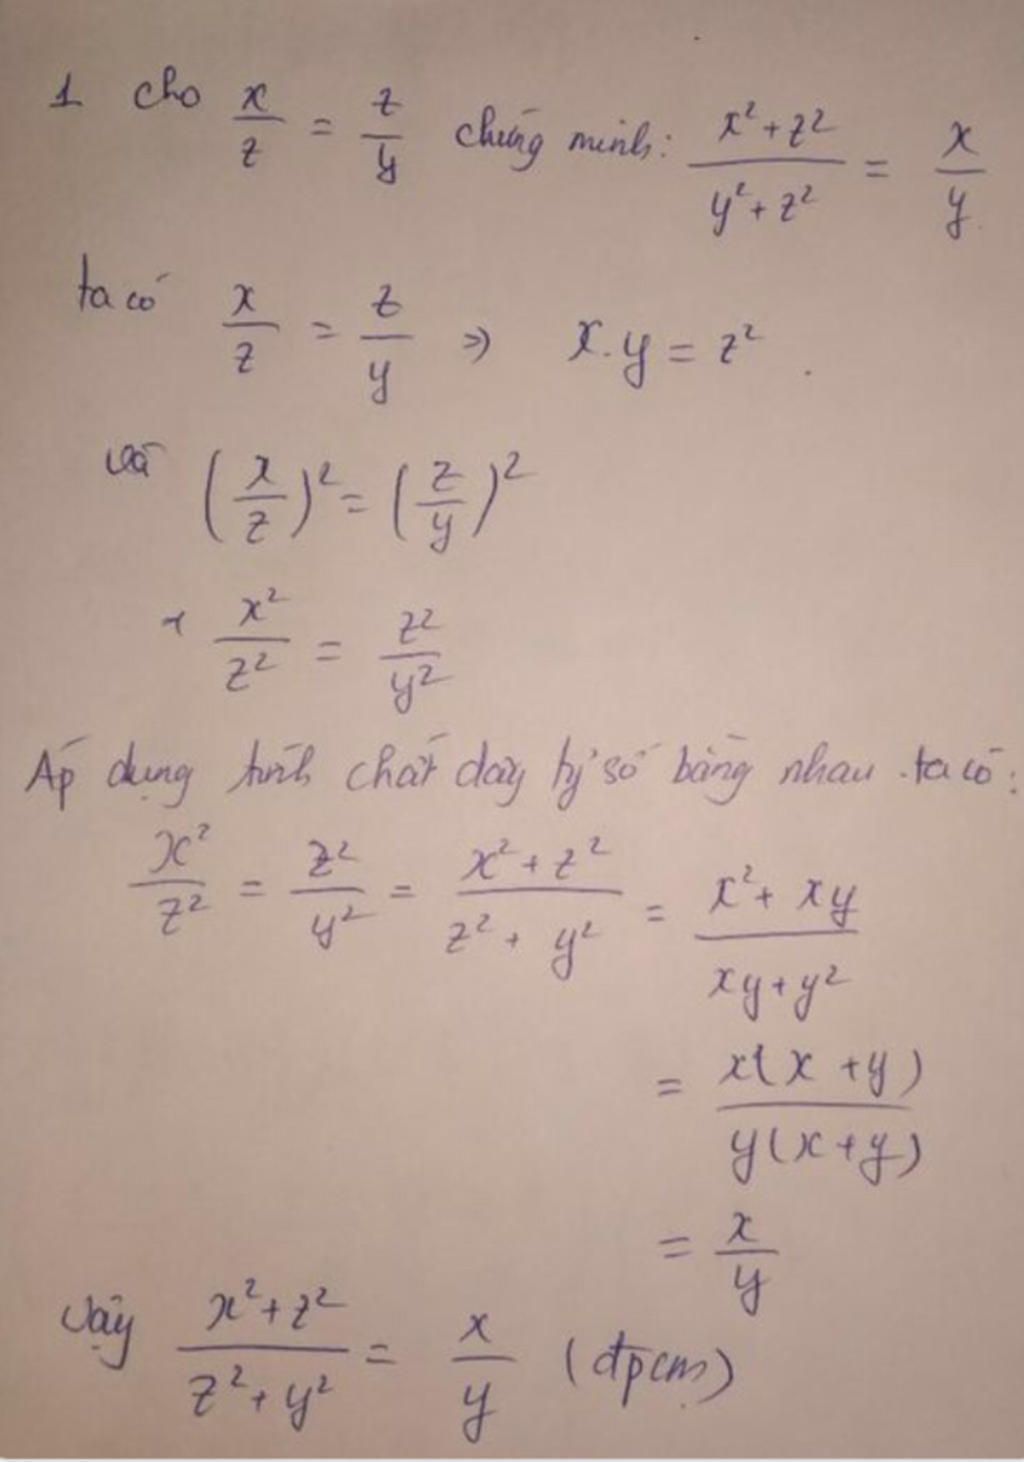 1 cho x/z = z/y chứng minh: (x² + z²)/(y² + z²) = x/y
ta có x/z = z/y ⇒ x.y = z²
và (x/z)² = (z/y)²
x²/z² = z²/y²
Áp dụng tính chất dãy tỷ số bằng nhau ta có:
x²/z² = z²/y² = (x² + z²)/(z² + y²) = (x² + xy)/(xy + y²)
= x(x + y)/y(x + y)
= x/y
Vậy (x² + z²)/(z² + y²) = x/y (đpcm)